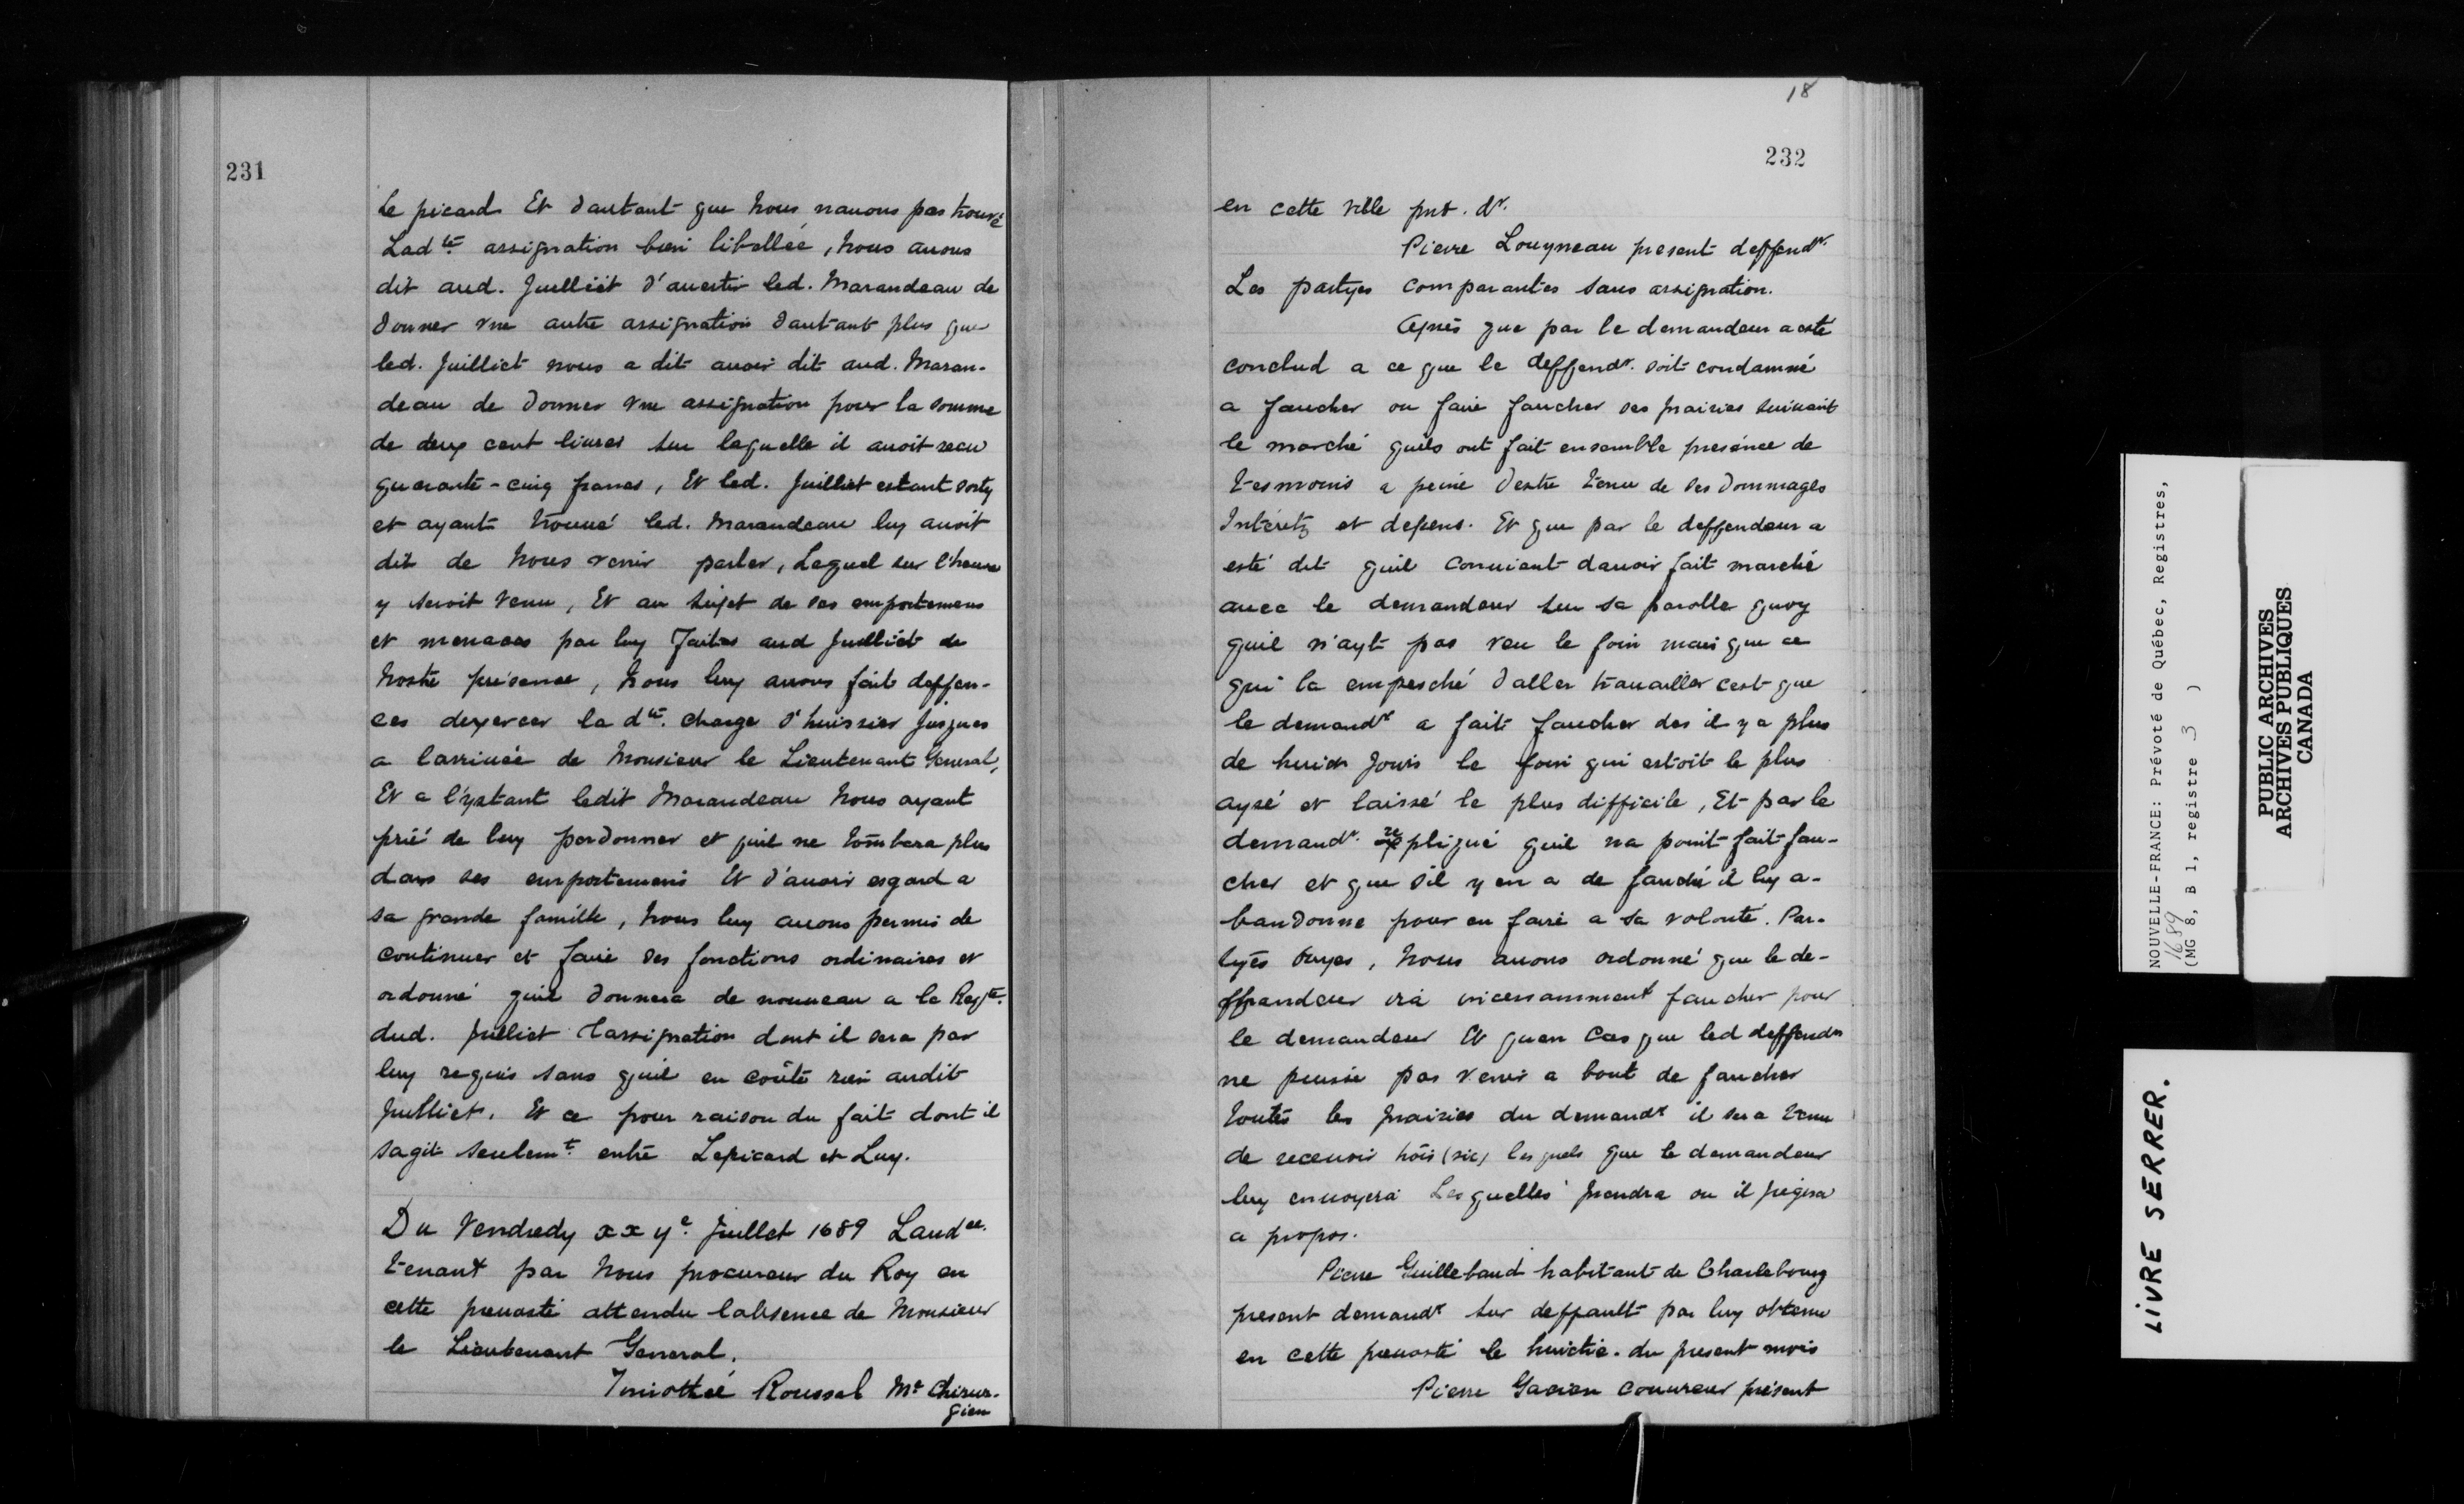 231
le picard Et dautant que nous nauons pas trouvé
Ladte assignation bien libellée, nous auons
dit aud. Juilliet d'auertir led. Marandeau de
donner vne autre assignation dautant plus que
led. Juilliet nous a dit auoir dit aud. Maran-
deau de donner vne assignation pour la somme
de deux cent liures sur laquelle il auoit recu
quarante-cinq francs, Et led. Juilliet estant sorty
et ayant trouué led. Marandeau luy auoit
dit de nous venir parler, Lequel sur l'heure
y seroit venu, Et au sujet de ses emportemens
et menaces par luy faites aud Juilliet de
nostre présence, nous luy auons fait deffen-
ces dexercer la dte. charge d'huissier jusques
a larriuée de Monsieur le Lieutenant General,
Et a l'ystant ledit Marandeau nous ayant
prié de luy pardonner et quil ne tombera plus
dans ses emportemens Et d'auoir esgard a
sa grande famille, nous luy auons permis de
continuer et faire ses fonctions ordinaires et
ordonné quil donnera de nouueau a la Reqte.
dud. Juilliet lassignation dont il sera par
luy requis sans quil en coûte rien audit
Juilliet. Et ce pour raison du fait dont il
sagit seulemt. entre Lepicard et Luy.
Du Vendredy xx ye. Juillet 1689 Laudce.
tenant par nous procureur du Roy en
cette preuosté attendu labsence de Monsieur
le Lieutenant General.
Timothée Roussel Me Chirur-
gien
18
232
en cette ville pnt. dr.
Pierre Louyneau present deffendr.
Les partyes comparantes sans assignation.
Après que par le demandeur a esté
conclud a ce que le deffendr. soit condamné
a faucher ou faire faucher ses prairies suiuant
le marché quils ont fait ensemble presénce de
tesmoins a peine destre tenu de ses dommages
Intéretz et depens. Et que par le deffendeur a
esté dit quil conuient dauoir fait marché
auec le demandeur sur sa parolle quoy
quil n'ayt pas veu le foin mais que ce
qui la empesché daller trauailler cest que
le demandr a fait faucher des il y a plus
de huict jours le foin qui estoit le plus
aysé et laissé le plus difficile, Et par le
demandr. repliqué quil na point fait fau-
cher et que sil y en a de fauché il luy a-
bandonne pour en faire a sa volonté. Par-
tyes ouyes, nous auons ordonné que le de-
ffandeur ira incessamment faucher pour
le demandeur Et quen cas que led deffendr
ne puisse pas venir a bout de faucher
toutes les prairies du demandr il sera tenu
de receuoir trois (sic) lesquels que le demandeur
luy enuoyera Lesquelles prendra ou il jugera
a propos.
Pierre Guillebaud habitant de Charlebourg
present demandr sur deffault par luy obtenu
en cette preuosté le huictie. du present mois
Pierre Gacien couureur présent
NOUVELLE-FRANCE: Prévoté de Québec, Registres,
1689
(MG 8, B 1, registre 3 )
PUBLIC ARCHIVES
ARCHIVES PUBLIQUES
CANADA
LIVRE SERRER.